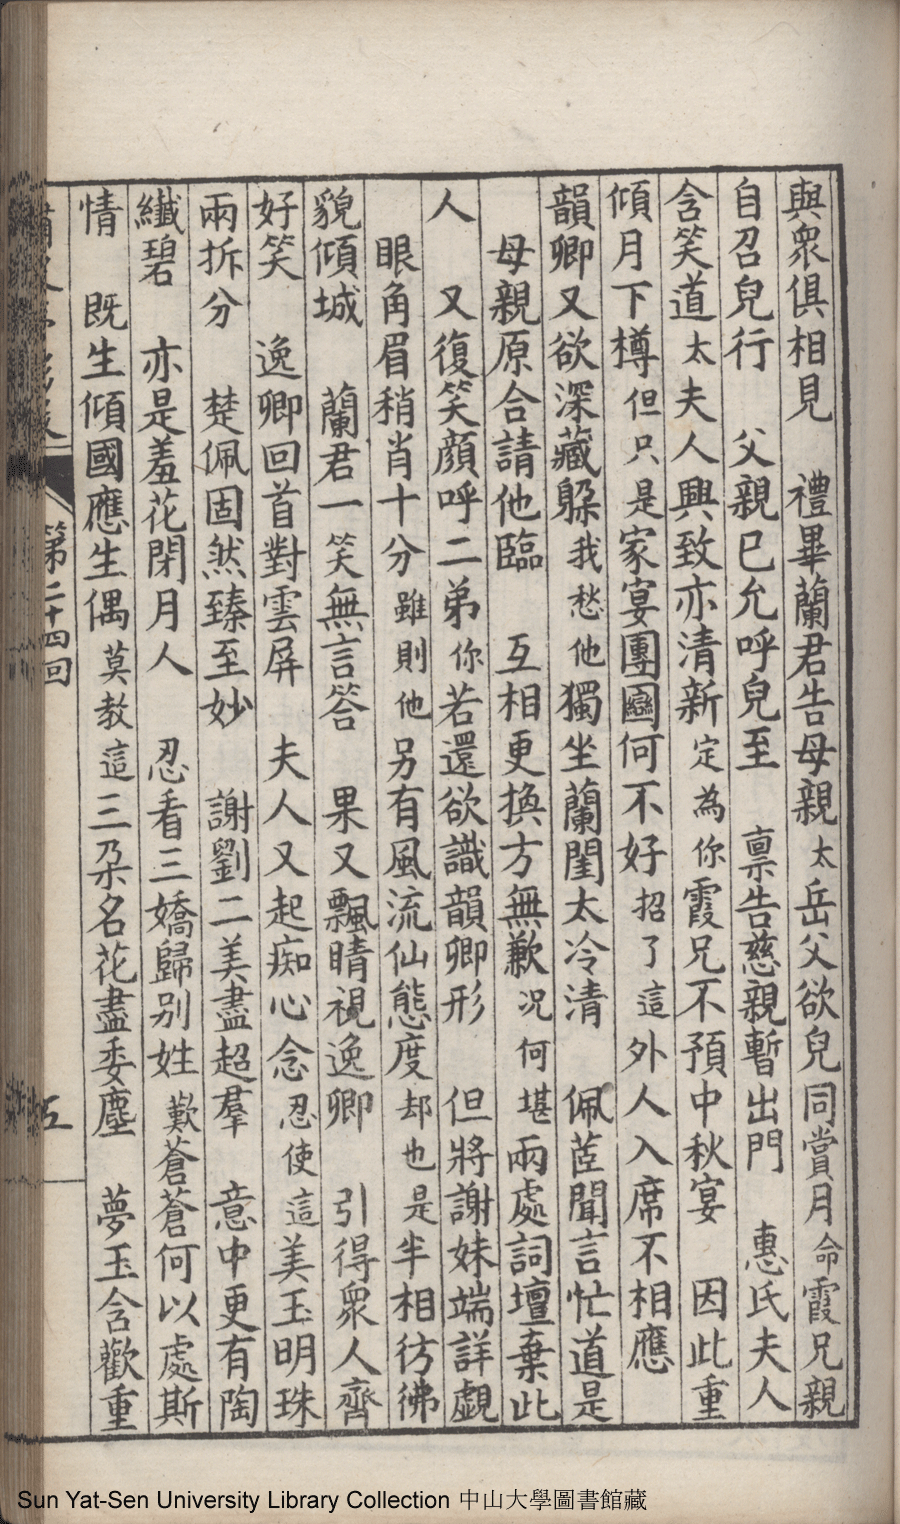 與衆俱相見　禮畢蘭君告母親太岳父欲兒同賞月命霞兄親
自召兒行　父親已允呼兒至　禀告慈親暫出門　惠氏夫人
含笑道太夫人興致亦清新定為你霞兄不預中秋宴　因此重
傾月下樽但只是家宴團圞何不好招了這外人入席不相應
韻卿又欲深藏躱我愁他獨坐蘭閨太冷清　佩茝聞言忙道是
母親原合請他臨　互相更換方無歉况何堪兩處詞壇棄此
人　又復笑顏呼二弟你若還欲識韻卿形　但將謝妹端詳覷
眼角眉稍肖十分雖則他另有風流仙態度却也是半相彷彿
貌傾城　蘭君一笑無言答　果又飄睛視逸卿　引得衆人齊
好笑　逸卿回首對雲屏　夫人又起痴心念忍使這美玉明珠
兩拆分　楚佩固然臻至妙　謝劉二美盡超羣　意中更有陶
纖碧　亦是羞花閉月人　忍看三嬌歸别姓歎蒼蒼何以處斯
情　既生傾國應生偶莫教這三朶名花盡委塵　夢玉含歡重
第二十四回
五
Sun Yat-Sen University Library Collection 中山大學圖書館藏